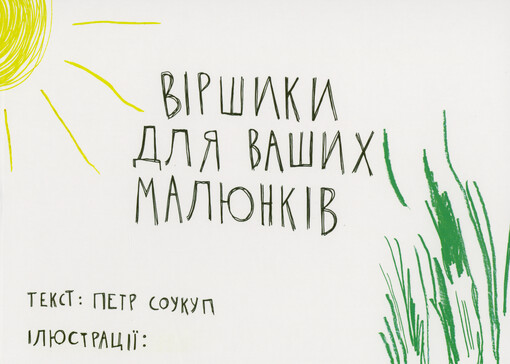 ВІРШИКИ
ДЛЯ ВАШИХ
МАЛЮНКІВ
ТЕКСТ: ПЕТР СОУКУП
ІЛЮСТРАЦІЇ: